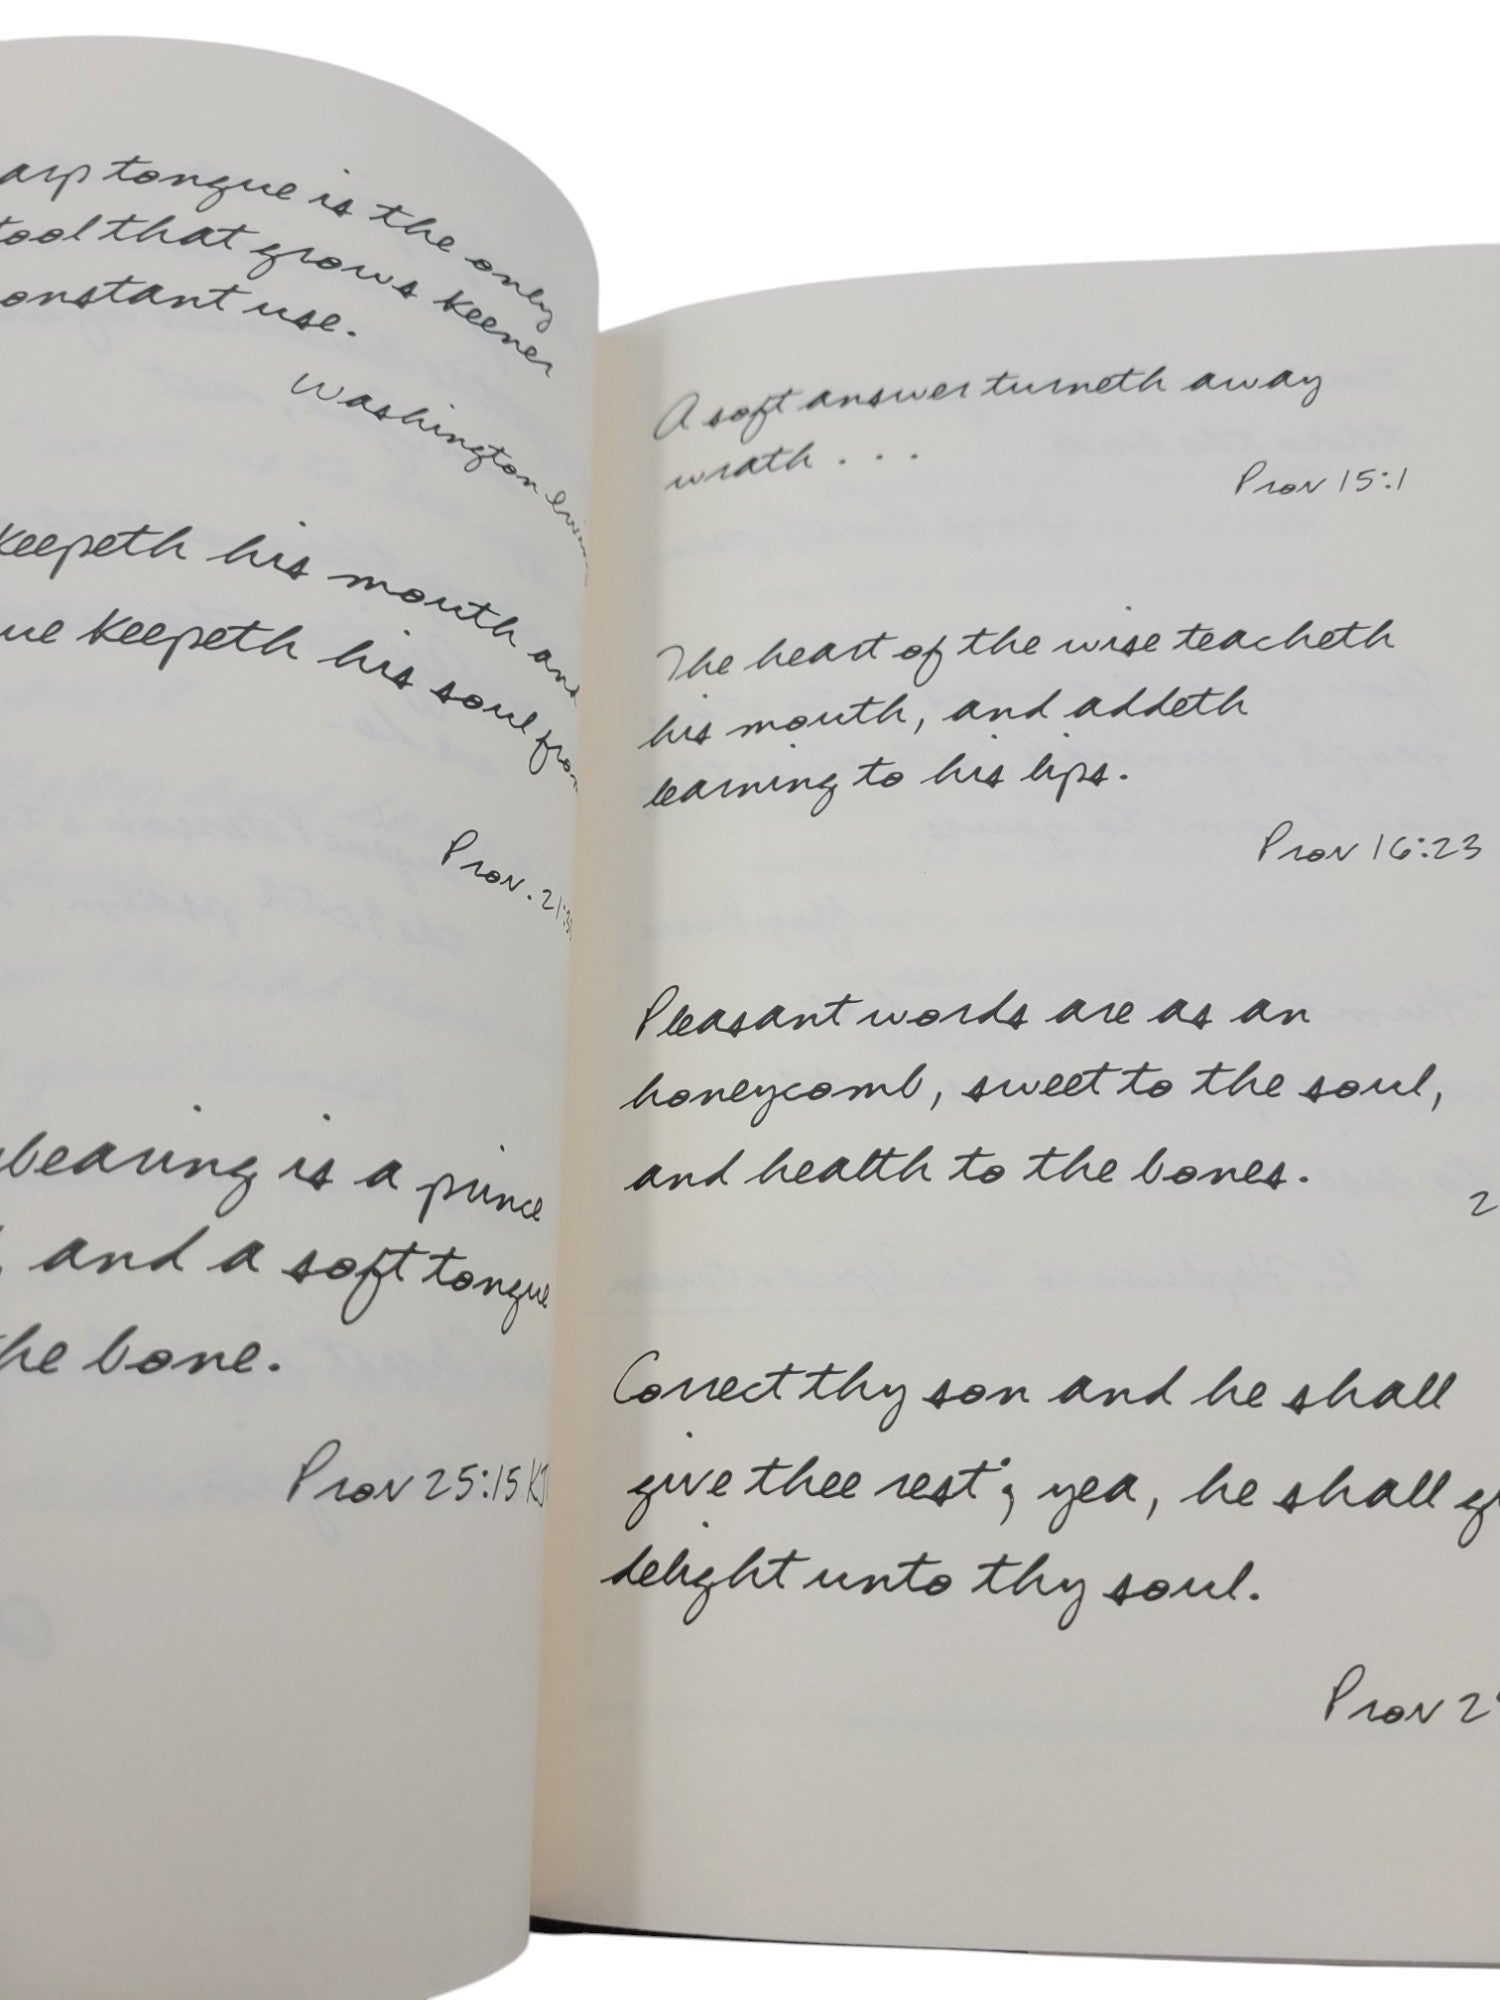 arp tongue is the only
tool that grows keener
onstant use.
Washington
keepeth his mouth and
ue keepeth his soul from
Prov. 21:
bearing is a prince
, and a soft tongue
he bone.
Prov 25:15 KJ
A soft answer turneth away
wrath . . .
Prov 15:1
The heart of the wise teacheth
his mouth, and addeth
learning to his lips.
Prov 16:23
Pleasant words are as an
honeycomb, sweet to the soul,
and health to the bones.
2
Correct thy son and he shall
give thee rest; yea, he shall g
delight unto thy soul.
Prov 2